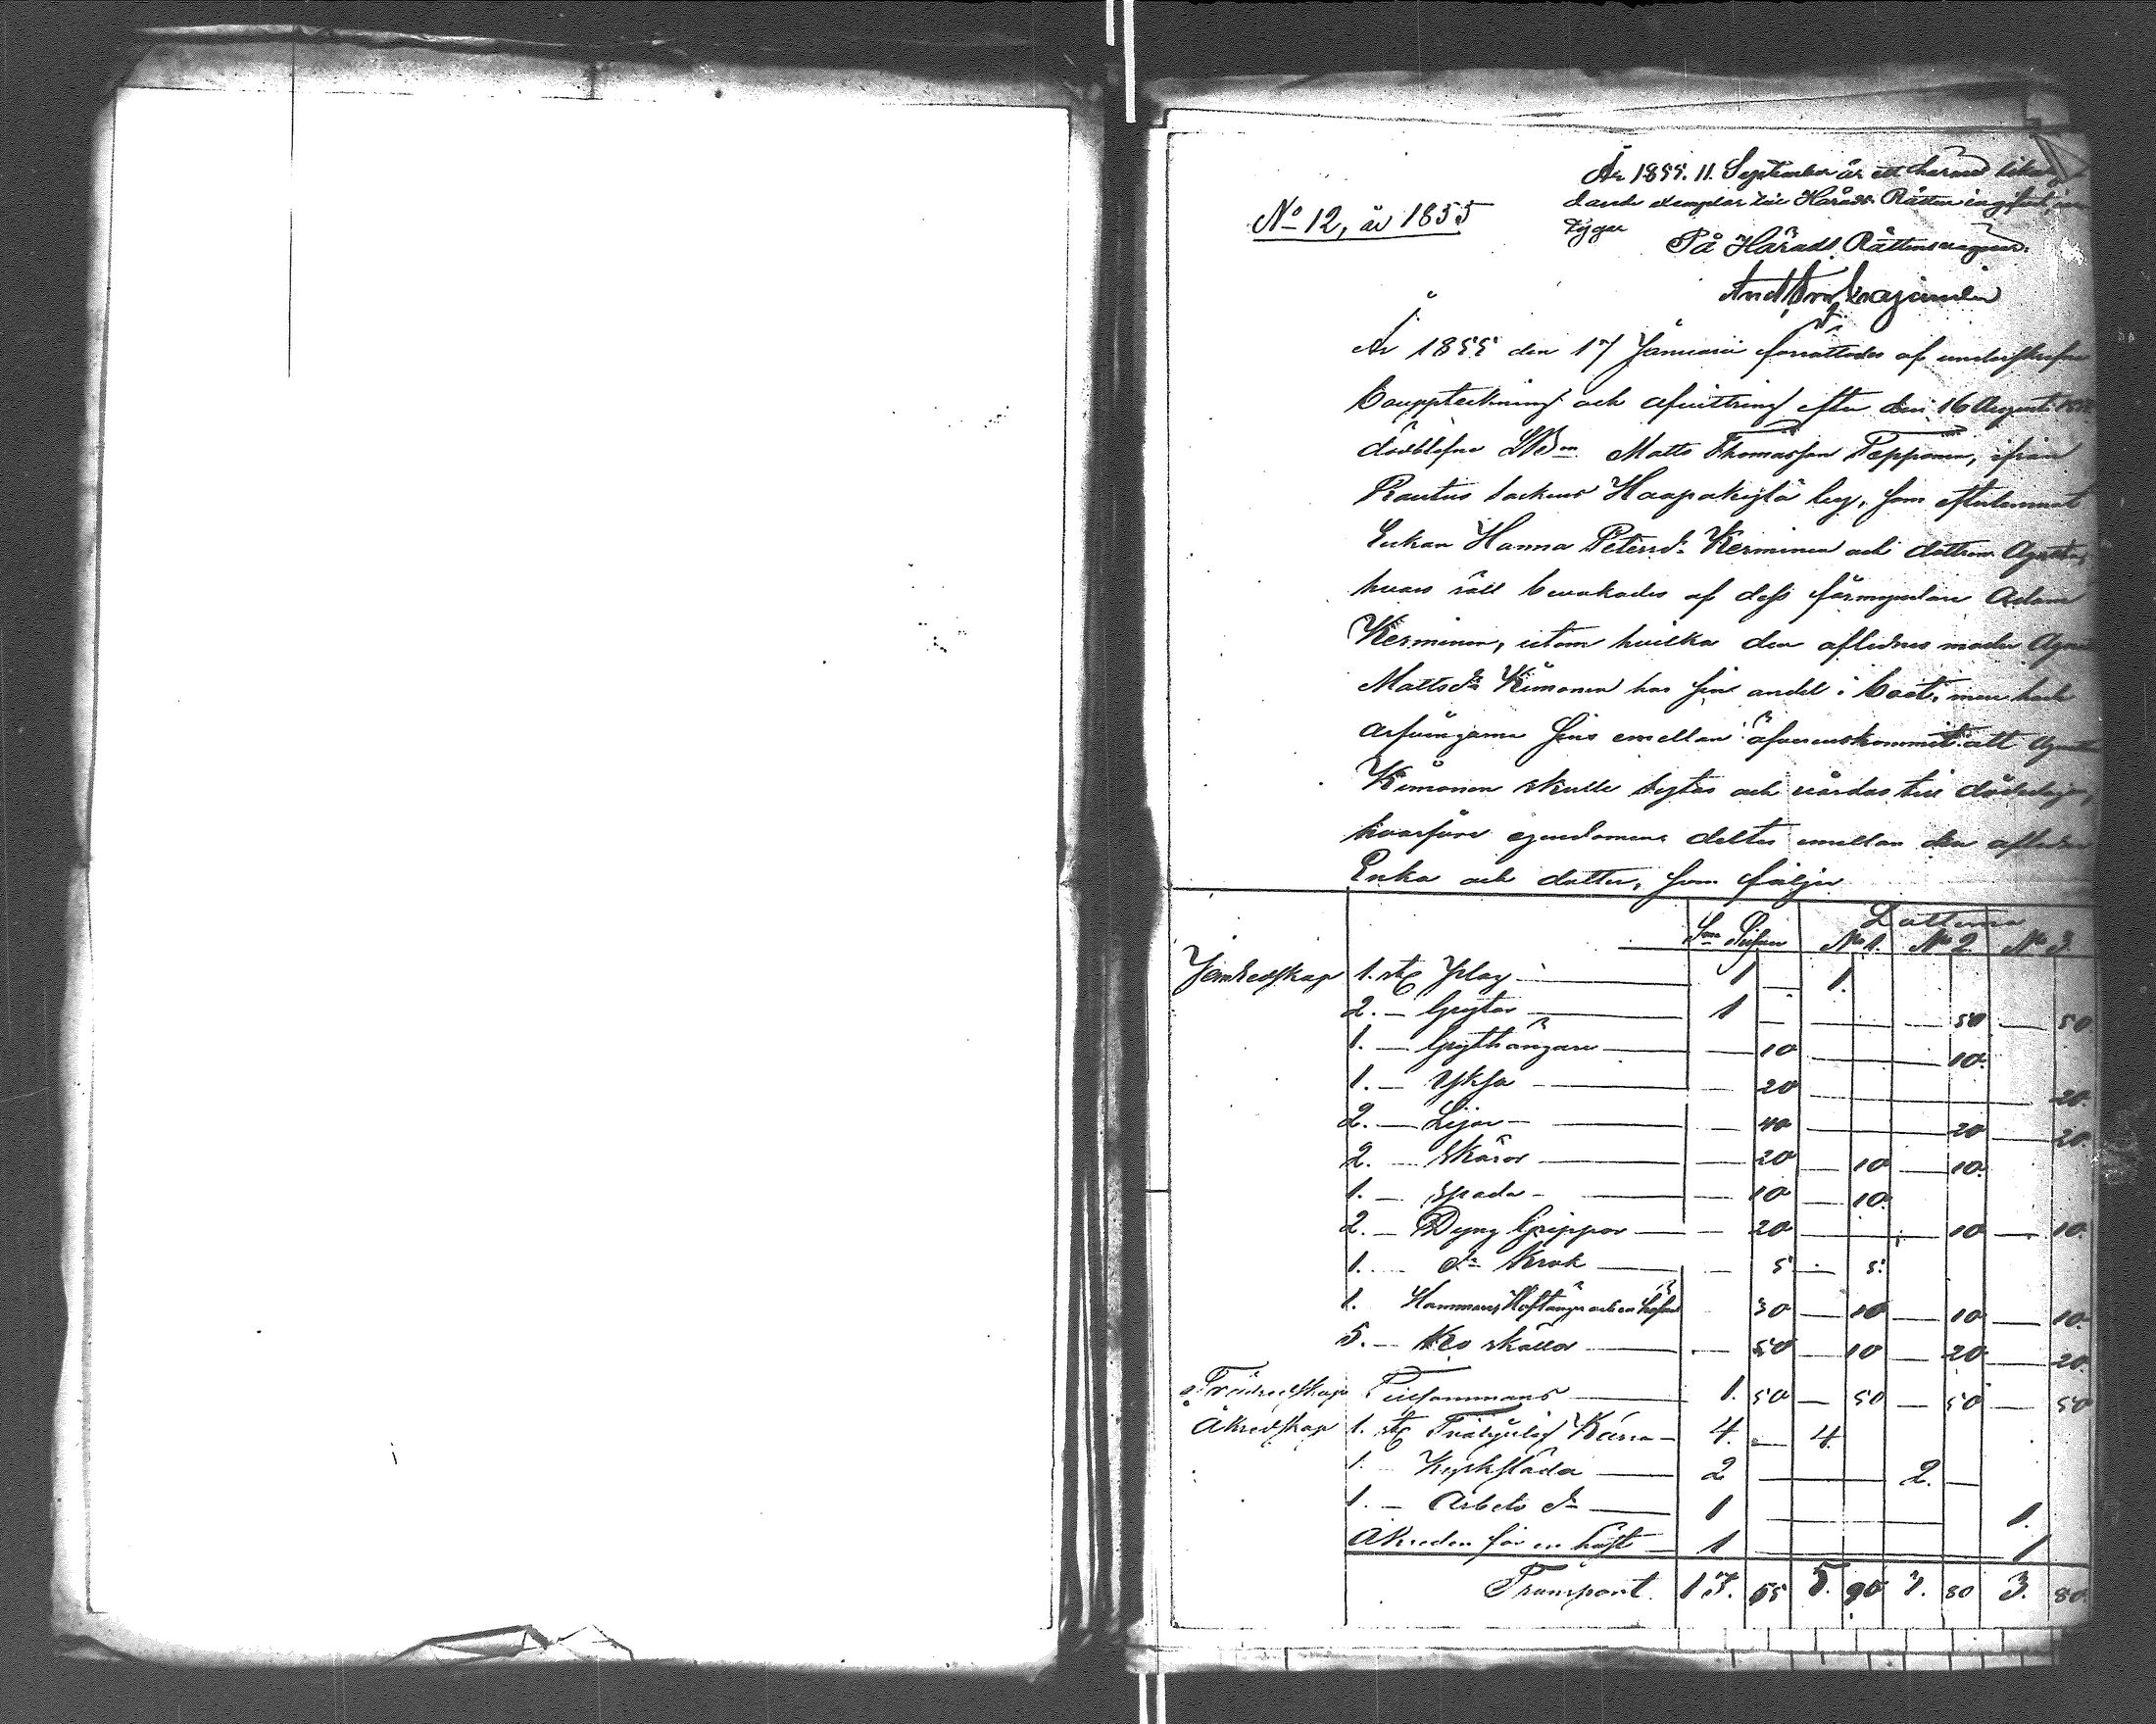 År 1855. 11. September är ett härmed lika
dande exemplar till Härads Rätten ingifvet,
tygar
På Härads Rättens vägnar:
No 12, år 1855
År 1855 den 17 Januarii förrättades af underskrefne
Bouppteckning och afvittring efter den 16 Augusti
dödblefne LBn Matts Thomasson Pepponen, ifrån
Rautus Sockens Haapakylä by, som efterlemnat
Enkan Hanna Petersdr Kerminen och dottren Agneta,
hvars rätt bevakades af dess förmyndare Adam
Kerminen, utom hvilka den aflednes moder Agneta
Mattsdr Kimonen har sin andel i boet, men hade
arfvingarna sins emellan öfverenskommit att Agneta
Kimonen skulle skytas och vårdas till dödedagar,
hvarföre egendomen deltes emellan den aflednes
Enka och dotter, som följer
Lotterna
Srr Pressen No 1. No 2. No 3.
Jernredskap 1. st Plog — 1 — 1.
2. — Grytor — 1 — 50 — 50
1. — Grythängare — 10 — 10.
1. — Yksa — 20 — 20.
2. — Lijor — 40 — 20 — 20.
2. — Skäror — 20 — 10 — 10.
1. — Spada — 10 — 10.
2. — Dyng Grippor — 20 — 10 — 10.
1. — do Krok — 5 — 5.
1. Hammare, Hoftång och en — 30 — 10 — 10 — 10.
5. — Ko skällor — 50 — 10 — 20 — 20.
Trädredskap Tillsammans — 1. 50 — 50 — 50 — 50
Åkredskap 1. st Tvåhjulig Kärra — 4. — 4.
1. — Kyrksläda — 2 — 2. —
1. — Arbets do — 1 — 1.
Åkreden för en häst — 1 — 1
Transport. 13. 55 5. 95 3. 80 3. 80.